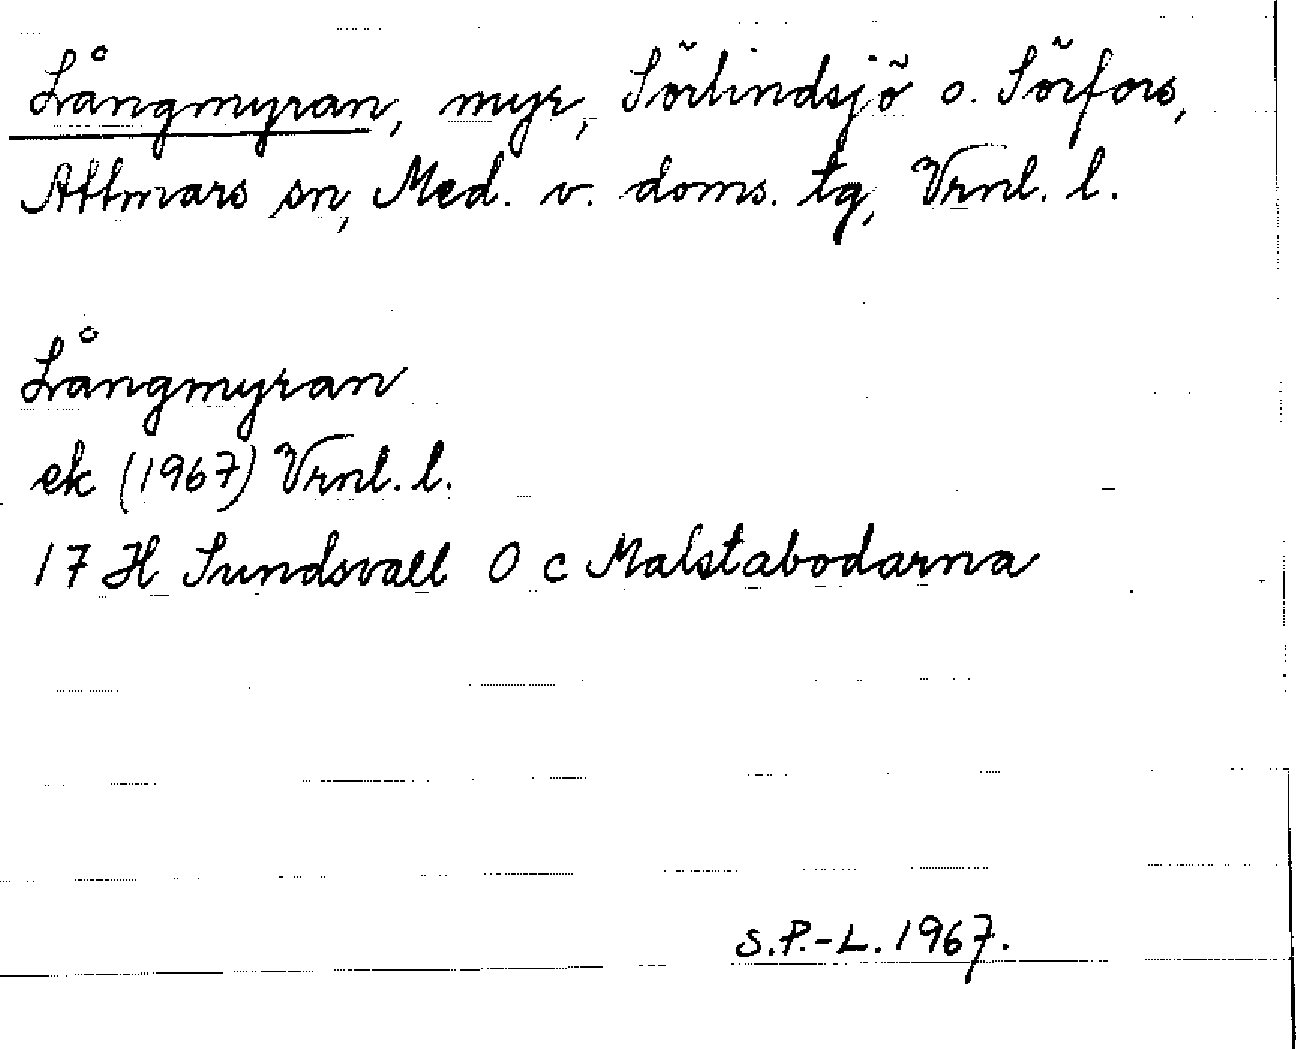 Långmyran, myr, Sörlindsjö o. Sörfors,
Attmars sn, Med. v. doms. tg, Vrnl. l.
Långmyran
ek (1967) Vrnl. l.
17 H Sundsvall 0 c Malstabodarna
S.P.-L. 1967.